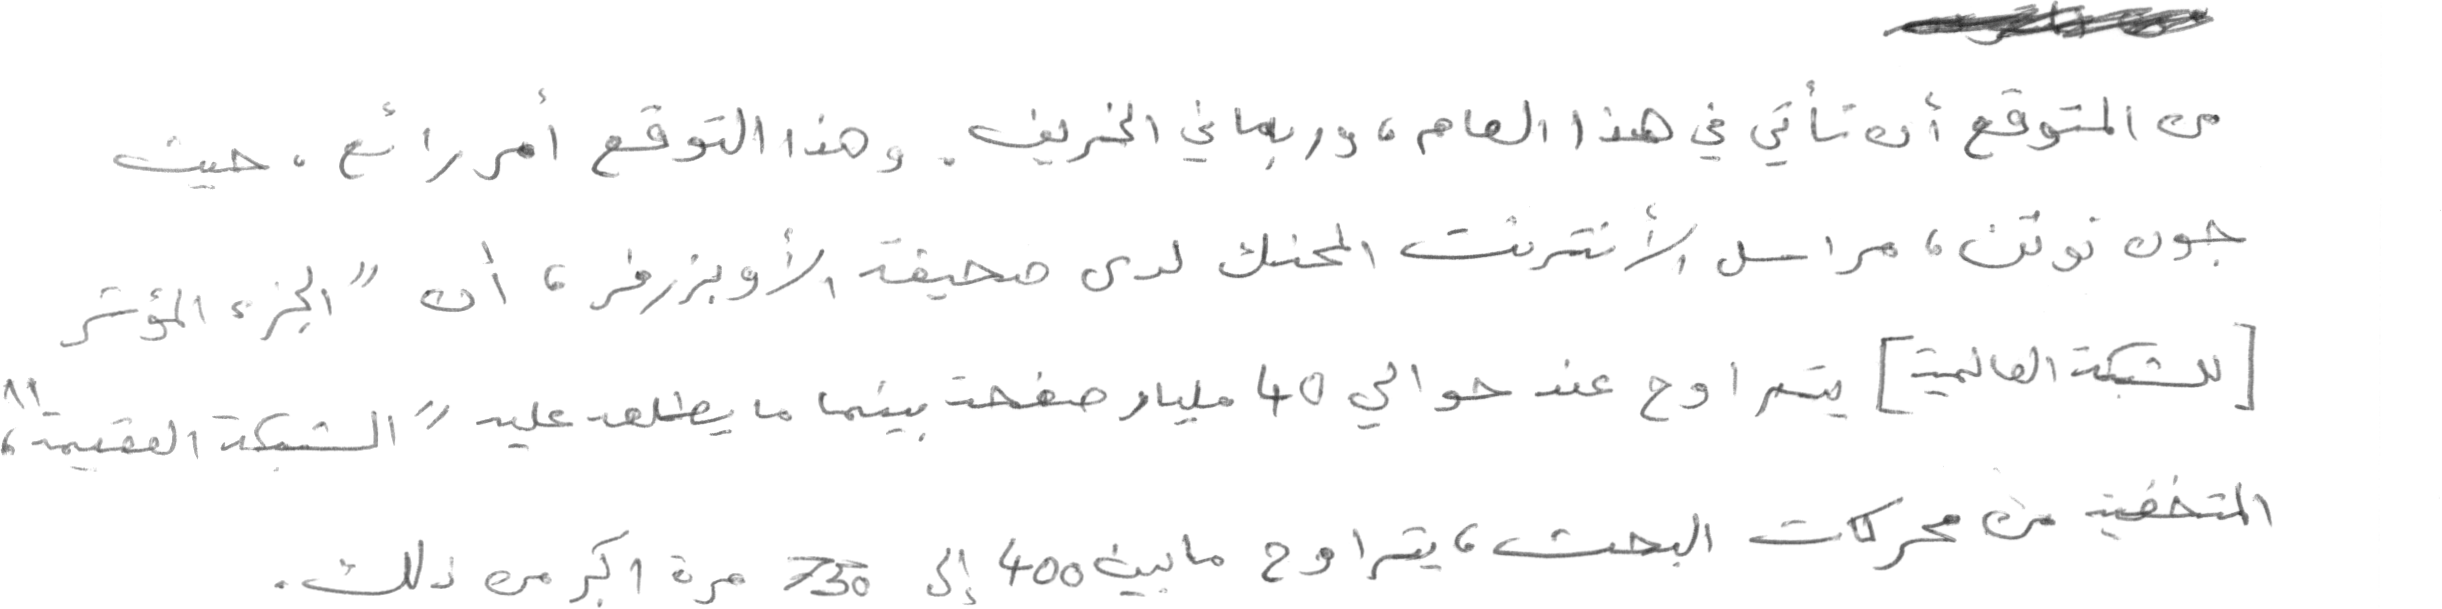 من المتوقع أن تأتي في هذا العام، وربما في الخريف. وهذا التوقع أمر رائع. حيث
جون نوتن، مراسل الأنترنت المحنك لدى صحيفة الأوبزرفر، أن "الجزء المؤشر
[للشبكة العالمية] يتراوح عند حوالي 40 مليار صفحة بينما ما يطلق عليه "الشبكة العقيمة"،
المتخفية من محركات البحث، يتراوح ما بين 400 إلى 750 مرة اكبر من ذلك.